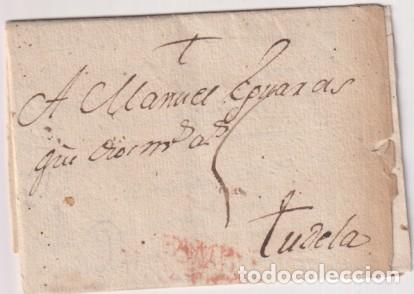 A Manuel Eguaras
que Dios m.s a.s
5
Tudela
todocoleccion.net